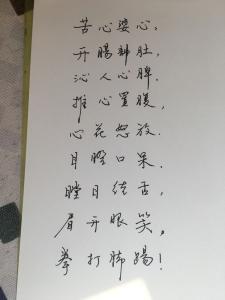 苦心婆心。
开肠剖肚,
沁人心脾.
推心置腹,
心花怒放.
目瞪口呆.
瞠目结舌,
眉开眼笑,
拳打脚踢!